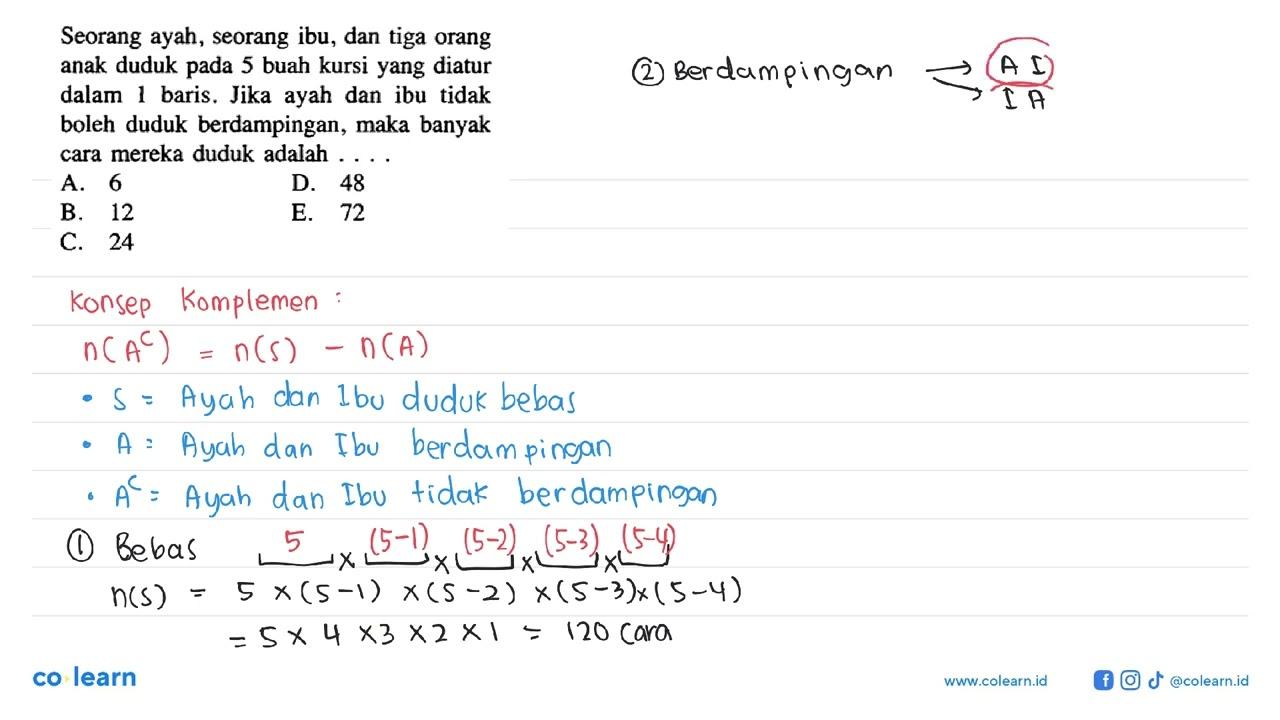 Seorang ayah, seorang ibu, dan tiga orang
anak duduk pada 5 buah kursi yang diatur
dalam 1 baris. Jika ayah dan ibu tidak
boleh duduk berdampingan, maka banyak
cara mereka duduk adalah . . . .
A. 6 D. 48
B. 12 E. 72
C. 24
② Berdampingan → A I
→ I A
Konsep Komplemen :
n(A^C) = n(S) - n(A)
• S = Ayah dan Ibu duduk bebas
• A = Ayah dan Ibu berdampingan
• A^C = Ayah dan Ibu tidak berdampingan
① Bebas 5 × (5-1) × (5-2) × (5-3) × (5-4)
n(S) = 5 × (5-1) × (5-2) × (5-3) × (5-4)
= 5 × 4 × 3 × 2 × 1 = 120 cara
co learn
www.colearn.id @colearn.id